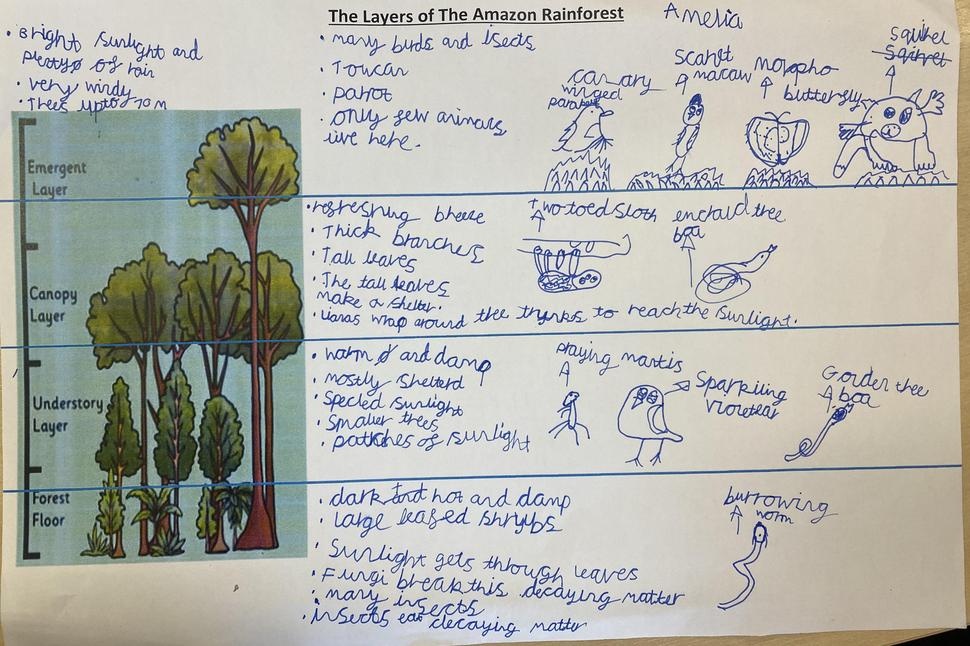 The Layers of The Amazon Rainforest
Amelia
• Bright sunlight and
plenty of rain
• very windy
• Trees up to 70 m
• many birds and isects
• Toucan
• parrot
• only few animals
live here.
canary
winged
parakeet
scarlet
macaw
morpho
butterfly
squirrel
Squirrel
Emergent
Layer
• refreshing breeze
• Thick branches
• Tall leaves
• The tall leaves
make a shelter.
• Lianas wrap around tree trunks to reach the sunlight.
two toed sloth
emerald tree
boa
Canopy
Layer
• warm and damp
• mostly shelterd
• Specled sunlight
• smaller trees
• patches of sunlight
praying mantis
Sparkiling
violetear
Gorder tree
boa
Understory
Layer
• dark and hot and damp
• Large leafed shrubs
• Sunlight gets through leaves
• Fungi break this decaying matter
• many insects
• insects eat decaying matter
burrowing
worm
Forest
Floor